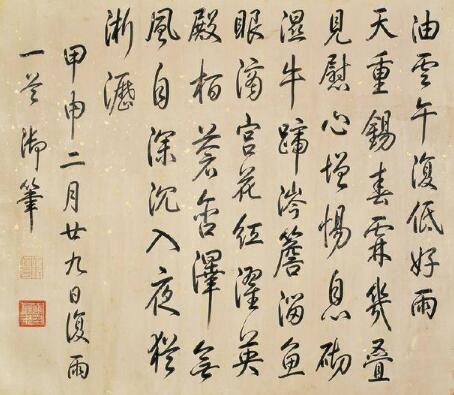 油雲午復低好雨
天重錫春霖幾疊
見慰心增惕息砌
濕牛蹄涔簷溜魚
眼滴宮花紅濯英
殿柏蒼含澤無
風自深沉入夜猶
淅瀝
甲申二月廿九日復雨
一首御筆